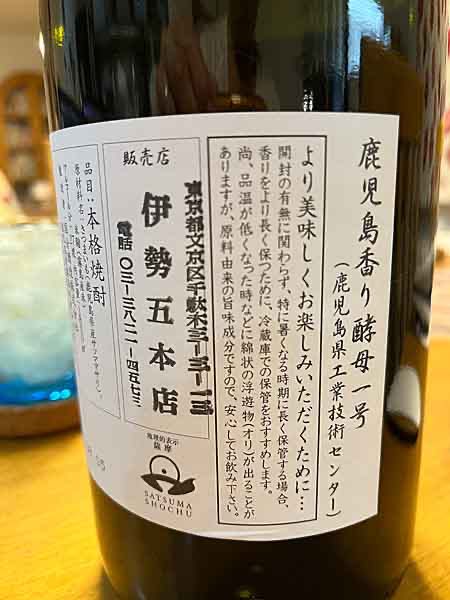 鹿児島香り酵母一号
(鹿児島県工業技術センター)
より美味しくお楽しみいただくために…
開封の有無に関わらず、特に暑くなる時期に長く保管する場合、
香りをより長く保つために、冷蔵庫での保管をおすすめします。
尚、品温が低くなった時などに綿状の浮遊物(オリ)が出ることが
ありますが、原料由来の旨味成分ですので、安心してお飲み下さい。
販売店
東京都文京区千駄木三-三-一三
伊勢五本店
電話 〇三-三八二一-四五七三
地理的表示
薩摩
SATSUMA
SHOCHU
品目:本格焼酎